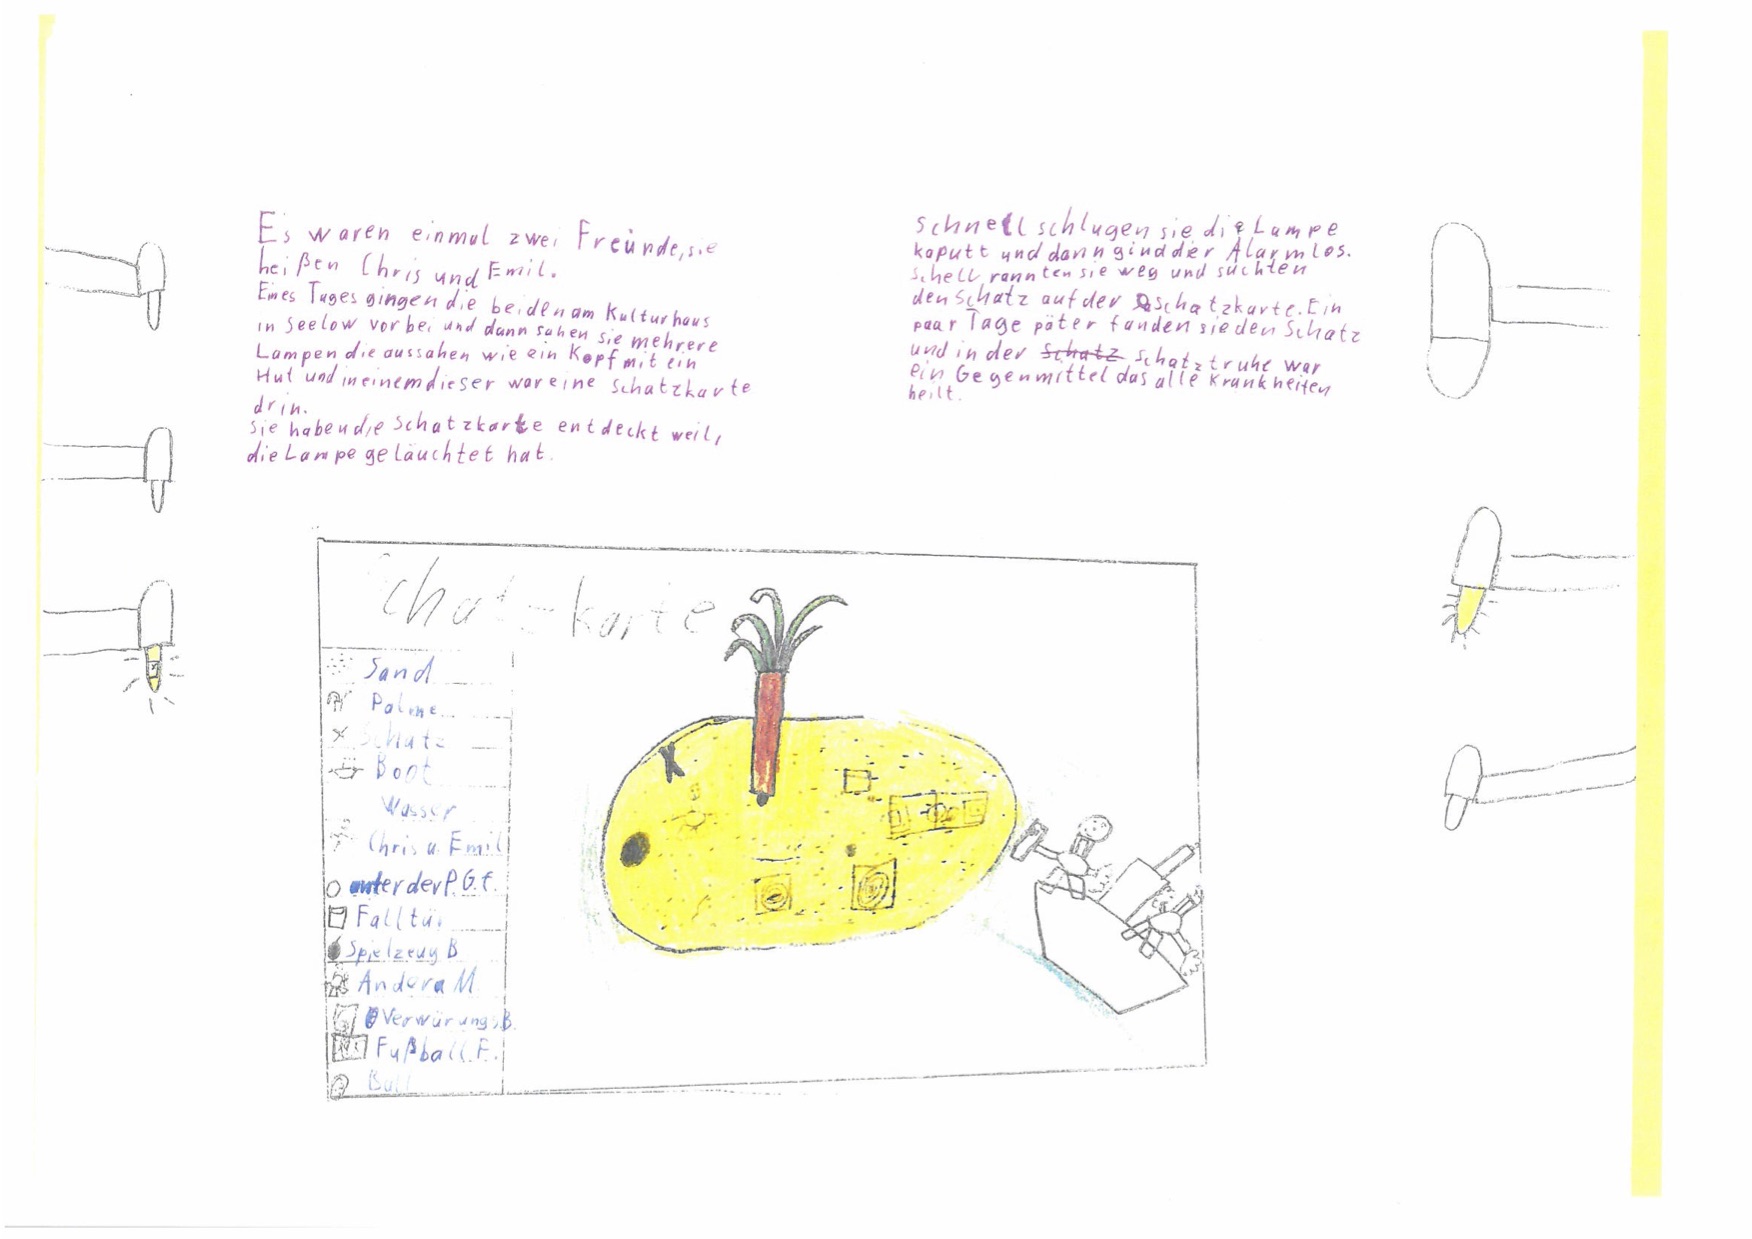 Es waren einmal zwei Freunde, sie
heißen Chris und Emil.
Eines Tages gingen die beiden am Kulturhaus
in Seelow vorbei und dann sahen sie mehrere
Lampen die aussahen wie ein Kopf mit ein
Hut und in einem dieser war eine Schatzkarte
drin.
sie haben die Schatzkarte entdeckt weil,
die Lampe geläuchtet hat.
Schnell schlugen sie die Lampe
kaputt und dann gind der Alarm los.
schell rannten sie weg und suchten
den Schatz auf der schatzkarte. Ein
paar Tage päter fanden sie den Schatz
und in der Schatz schatztruhe war
ein Gegenmittel das alle Krankheiten
heilt.
Schatz-karte
Sand
Palme
Schatz
Boot
Wasser
Chris u. Emil
unter der P. G. f.
Falltür
Spielzeug B
Andora M.
Verwürungs.B.
Fußball.F.
Ball